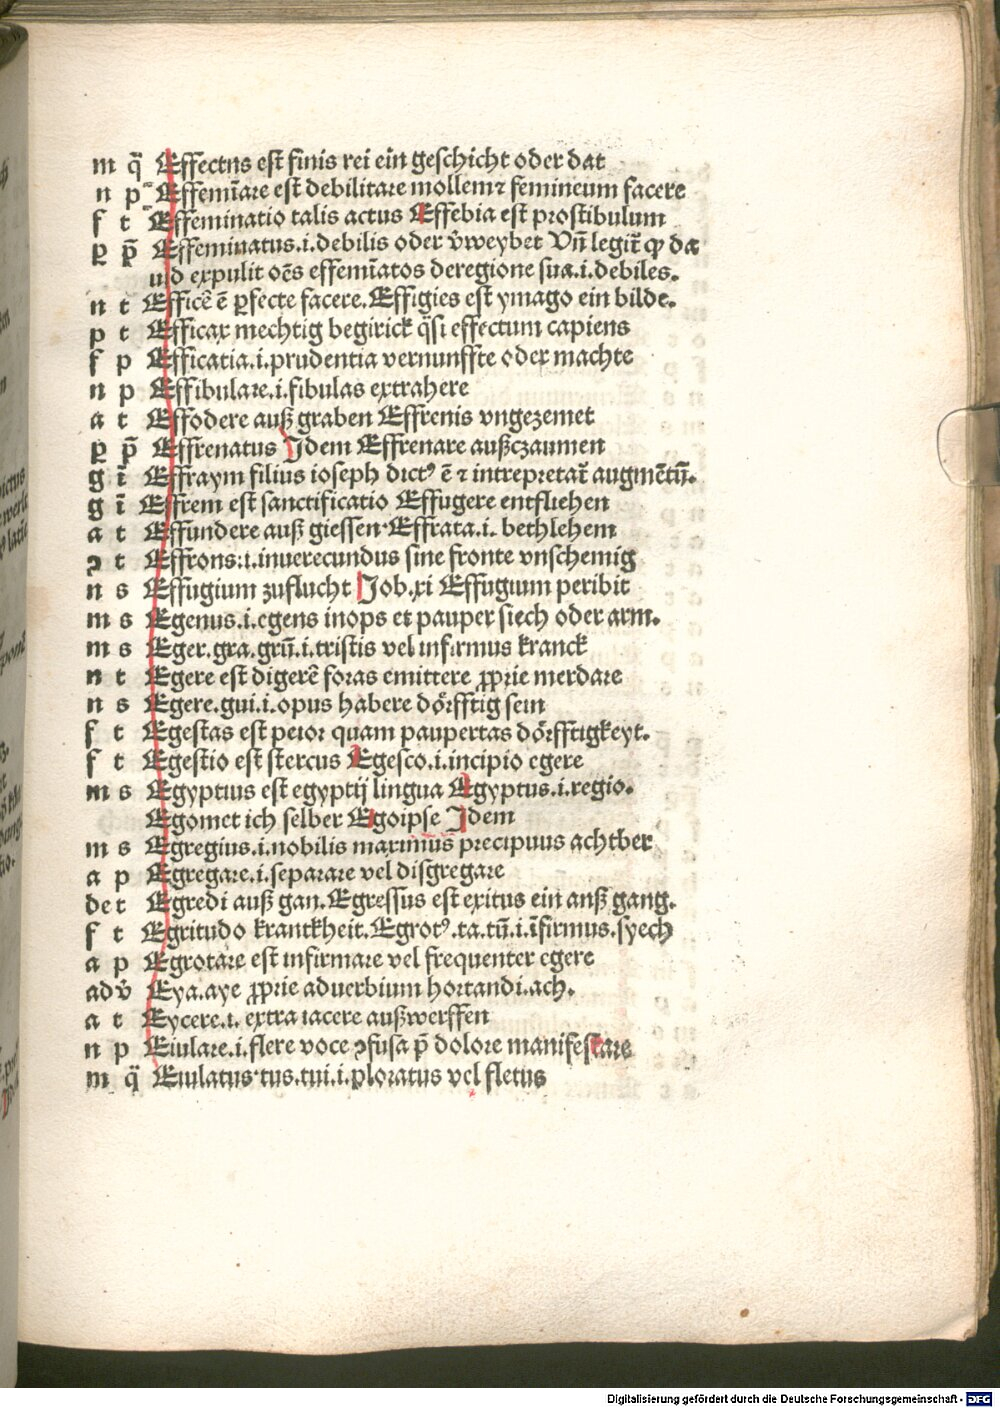 m q̄ Effectus est finis rei ein geschicht oder dat
n p Effemīare est debilitare mollem ⁊ femineum facere
f t Effeminatio talis actus Effebia est prostibulum
ꝑ p̄ Effeminatus.i.debilis oder v̄weybet Vn̄ legit̄ ꝙ da
uid expulit oēs effemīatos deregione sua.i.debiles.
n t Efficē ē ꝑfecte facere.Effigies est ymago ein bilde.
p t Efficax mechtig begirick q̄si effectum capiens
f p Efficatia.i.prudentia vernunffte oder machte
n p Effibulare.i.fibulas extrahere
a t Effodere auß graben Effrenis vngezemet
ꝑ p̄ Effrenatus Jdem Effrenare außczaumen
g ī Effraym filius ioseph dictꝰ ē ⁊ intrepretat̄ augmētū.
g ī Effrem est sanctificatio Effugere entfliehen
a t Effundere auß giessen.Effrata.i.bethlehem
ꝯ t Effrons:i.inuerecundus sine fronte vnschemig
n s Effugium zuflucht Job.xi Effugium peribit
m s Egenus.i.egens inops et pauper siech oder arm.
m s Eger.gra.grū.i.tristis vel infirmus kranck
n t Egere est digerē foras emittere ꝓprie merdare
n s Egere.gui.i.opus habere dörfftig sein
f t Egestas est peior quam paupertas dörfftigkeyt.
f t Egestio est stercus Egesco.i.incipio egere
m s Egyptius est egyptij lingua Egyptus.i.regio.
Egomet ich selber Egoipse Jdem
m s Egregius.i.nobilis maximus precipuus achtber
a p Egregare.i.separare vel disgregare
de t Egredi auß gan.Egressus est exitus ein auß gang.
f t Egritudo kranckheit.Egrotꝰ.ta.tū.i.īfirmus.syech
a p Egrotare est infirmare vel frequenter egere
adv̄ Eya.aye ꝓprie aduerbium hortandi.ach.
a t Eycere.i. extra iacere außwerffen
n p Eiulare.i.flere voce ꝯfusa p̄ dolore manifestare
m q̄ Eiulatus.tus.tui.i.ploratus vel fletus
Digitalisierung gefördert durch die Deutsche Forschungsgemeinschaft - DFG